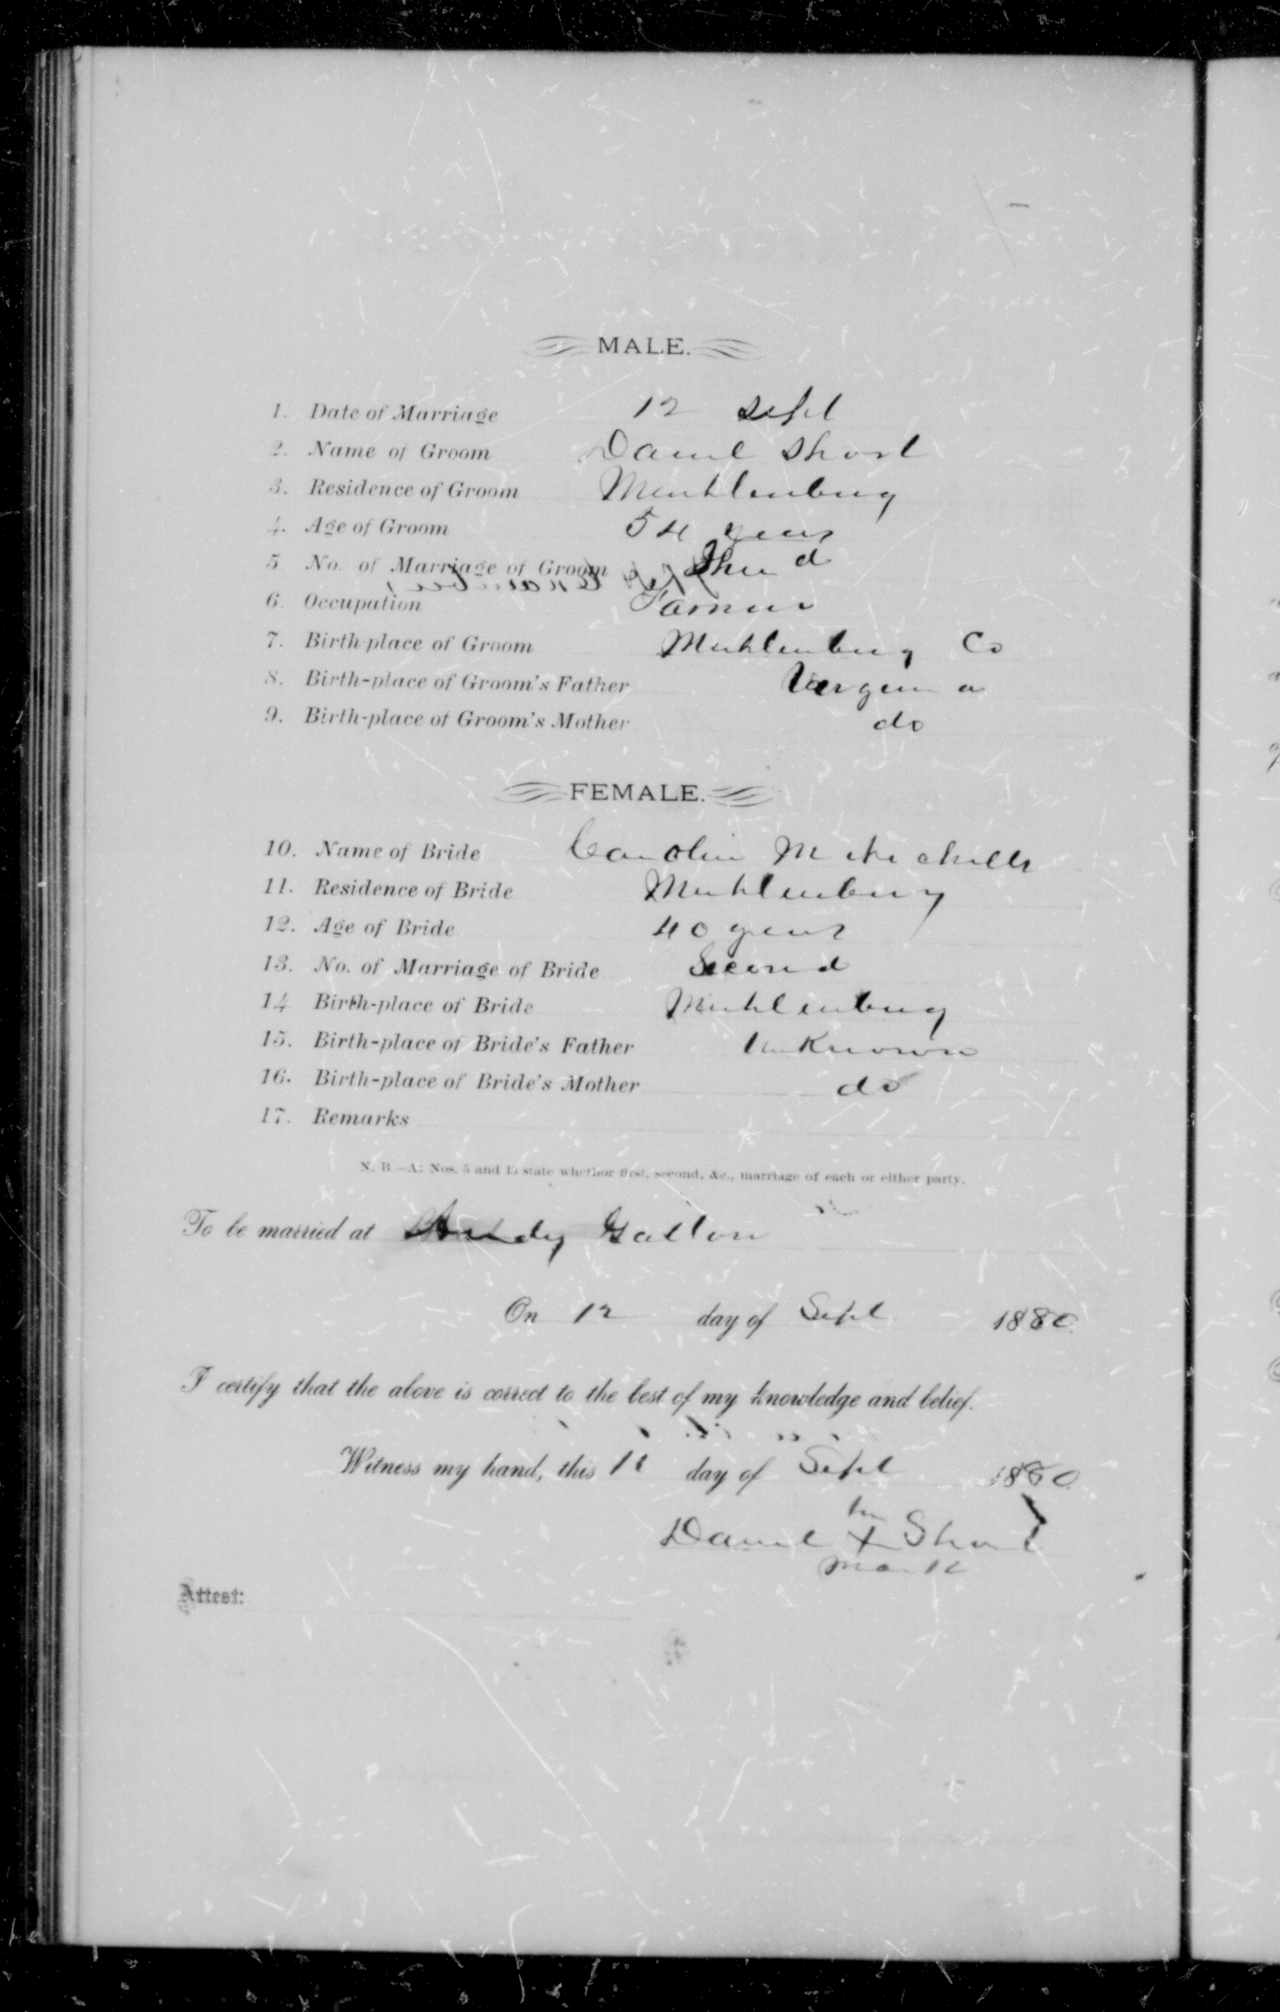 MALE.
1. Date of Marriage 12 Sept
2. Name of Groom Daniel Short
3. Residence of Groom Muhlenburg
4. Age of Groom 54 years
5. No. of Marriage of Groom Third
6. Occupation Farmer
7. Birth-place of Groom Muhlenburg Co
8. Birth-place of Groom's Father Virginia
9. Birth-place of Groom's Mother do
FEMALE.
10. Name of Bride
11. Residence of Bride Muhlenburg
12. Age of Bride 40 years
13. No. of Marriage of Bride Second
14. Birth-place of Bride Muhlenburg
15. Birth-place of Bride's Father Unknown
16. Birth-place of Bride's Mother do
17. Remarks
N. B.—At Nos. 5 and 13 state whether first, second, &c., marriage of each or either party.
To be married at
On 12 day of Sept 1880
I certify that the above is correct to the best of my knowledge and belief.
Witness my hand, this day of Sept 1880
Daniel X Short
mark
Attest: